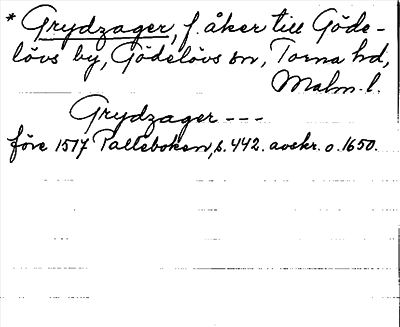 * Grydzager, f. åker till Göde-
lövs by, Gödelövs sn, Torna hd,
Malm. l.
Grydzager ---
före 1517 Palleboken, s. 442. avskr. o. 1650.